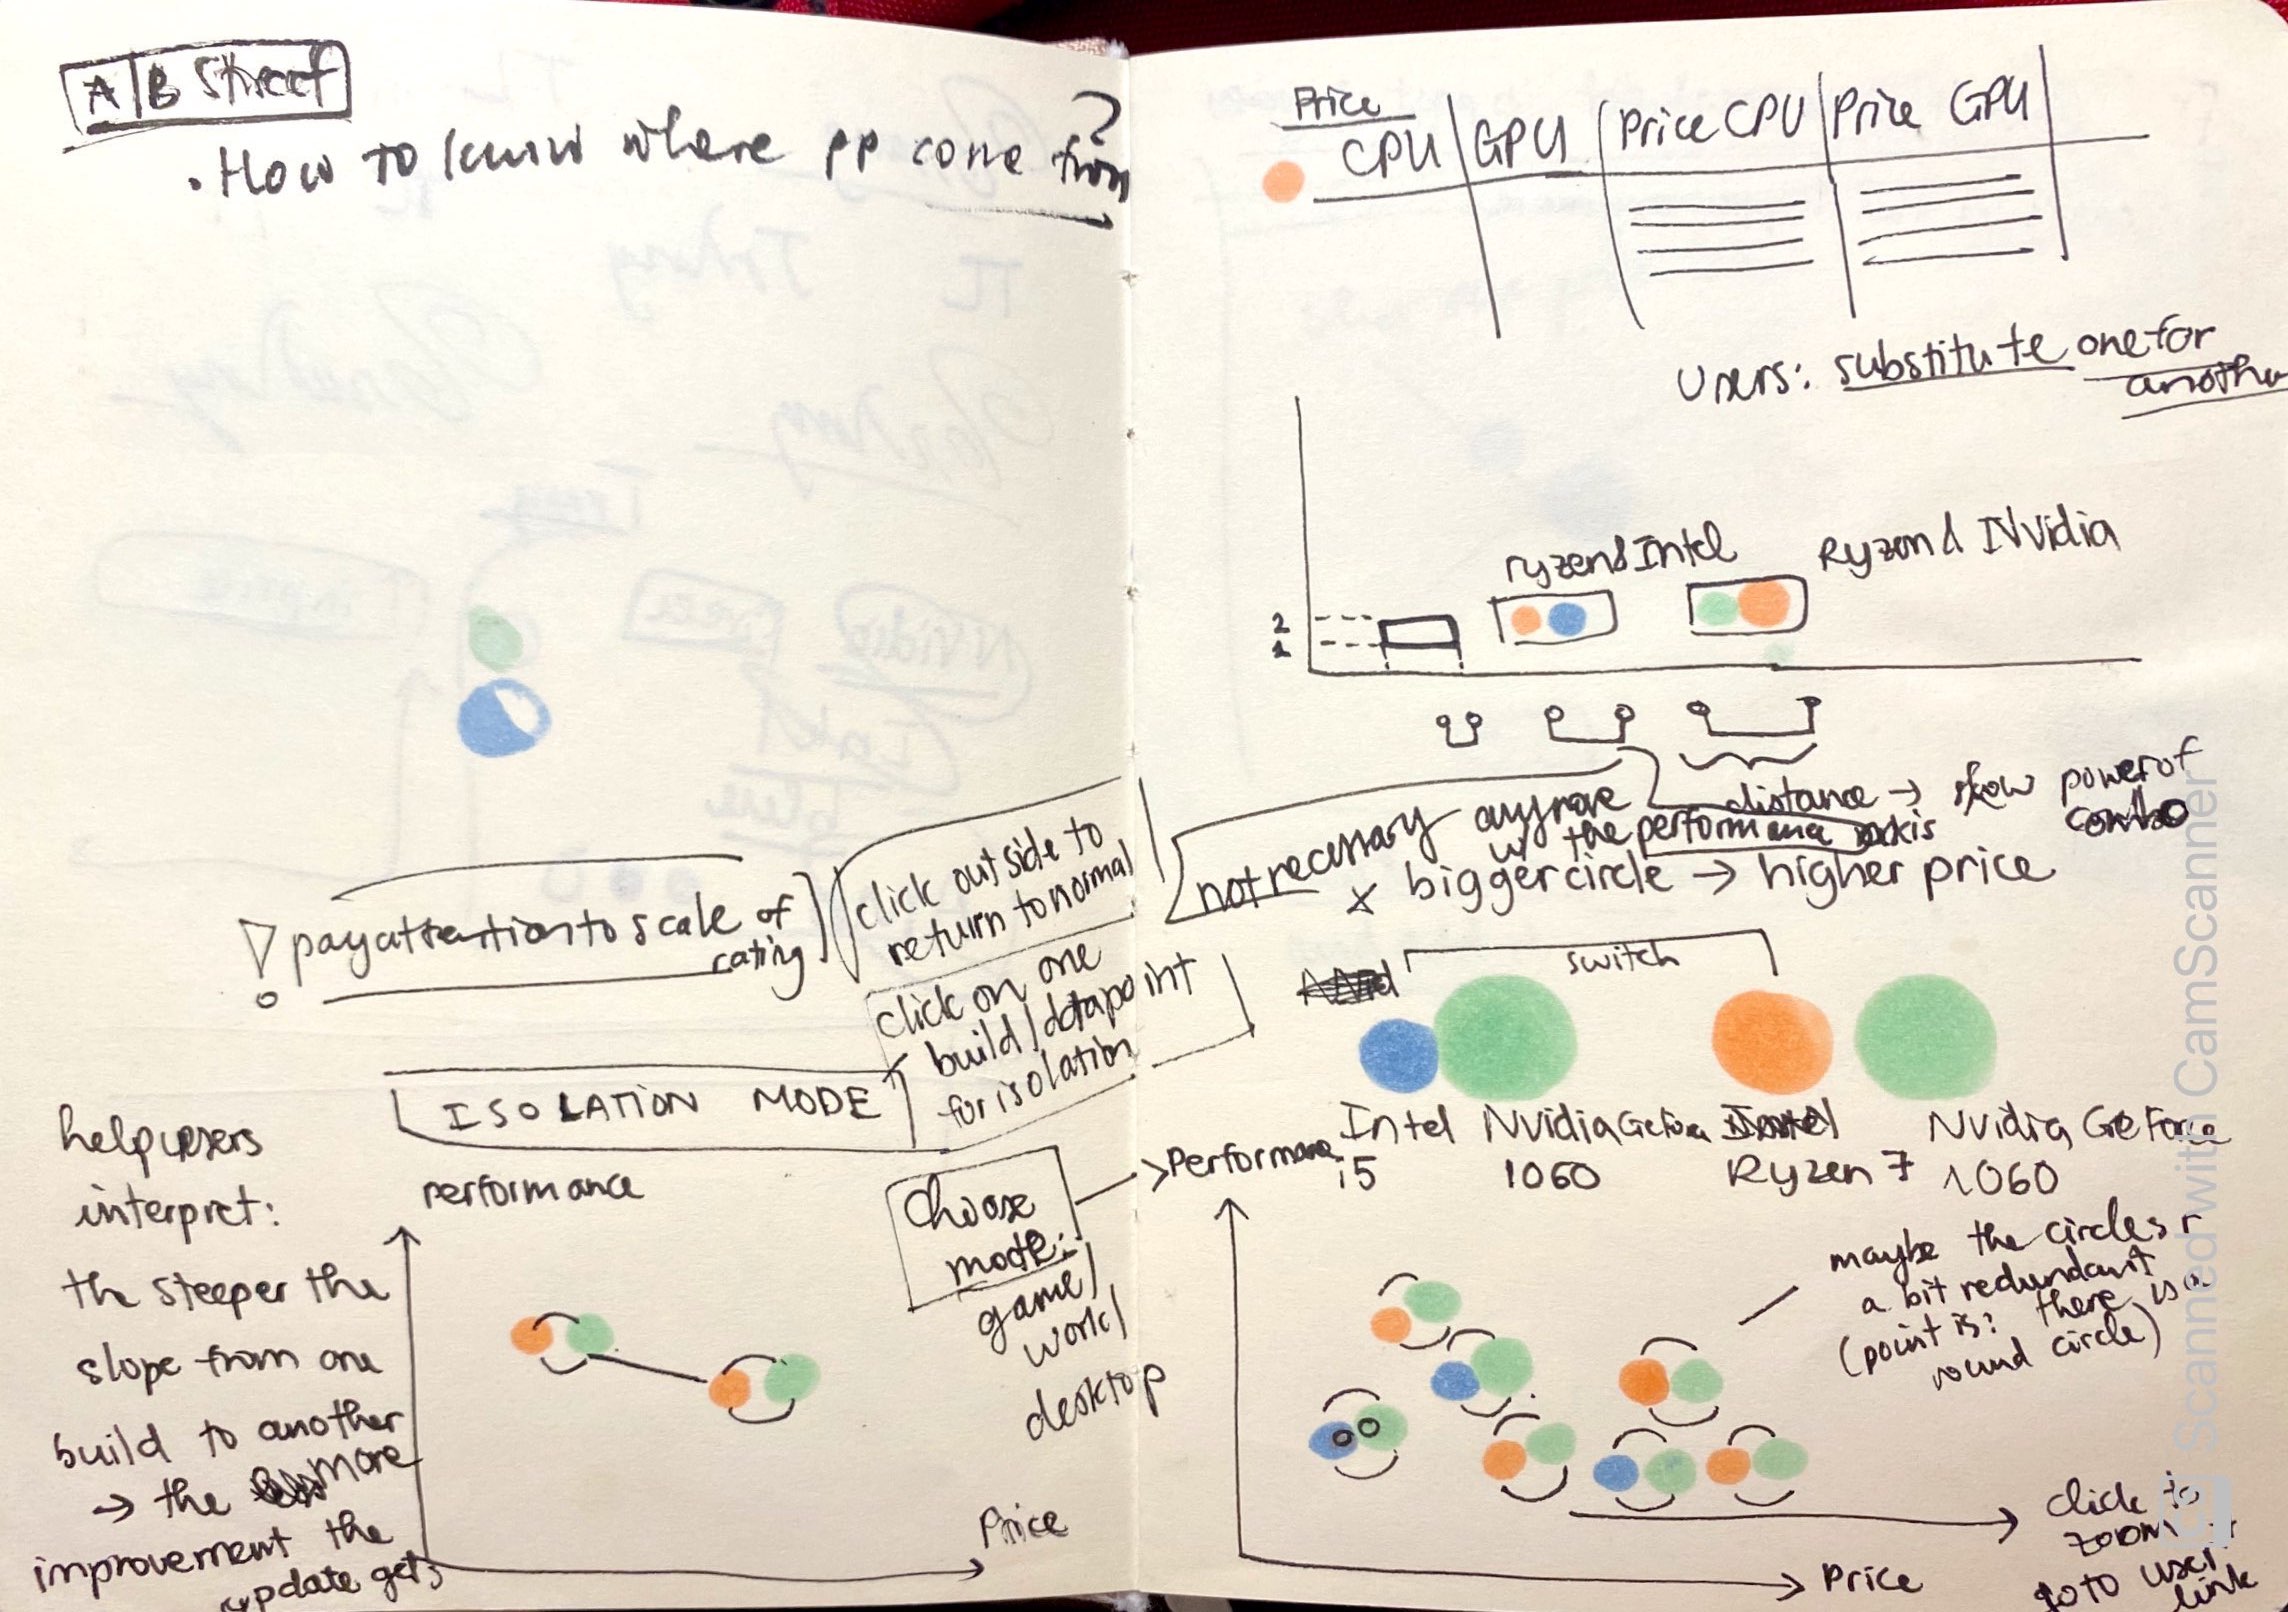 A|B Street
• How to know where pp come from?
! pay attention to scale of
rating
click outside to
return to normal
click on one
build/datapoint
for isolation
ISOLATION MODE
help users
interpret:
the steeper the
slope from one
build to another
→ the more
improvement the
update gets
performance
Price
Choose
mode:
game/
work/
desktop
Price
CPU | GPU | Price CPU | Price GPU
Users: substitute one for
another
ryzen & Intel
Ryzen & NVidia
2
1
distance → show power of
combo
not necessary anymore
w/ the performance axis
x bigger circle → higher price
switch
Intel
i5
Nvidia GeForce
1060
Ryzen 7
Nvidia GeForce
1060
Performance
maybe the circles r
a bit redundant
(point is: there is a
round circle)
Price
click to
zoom
go to user
link
Scanned with CamScanner